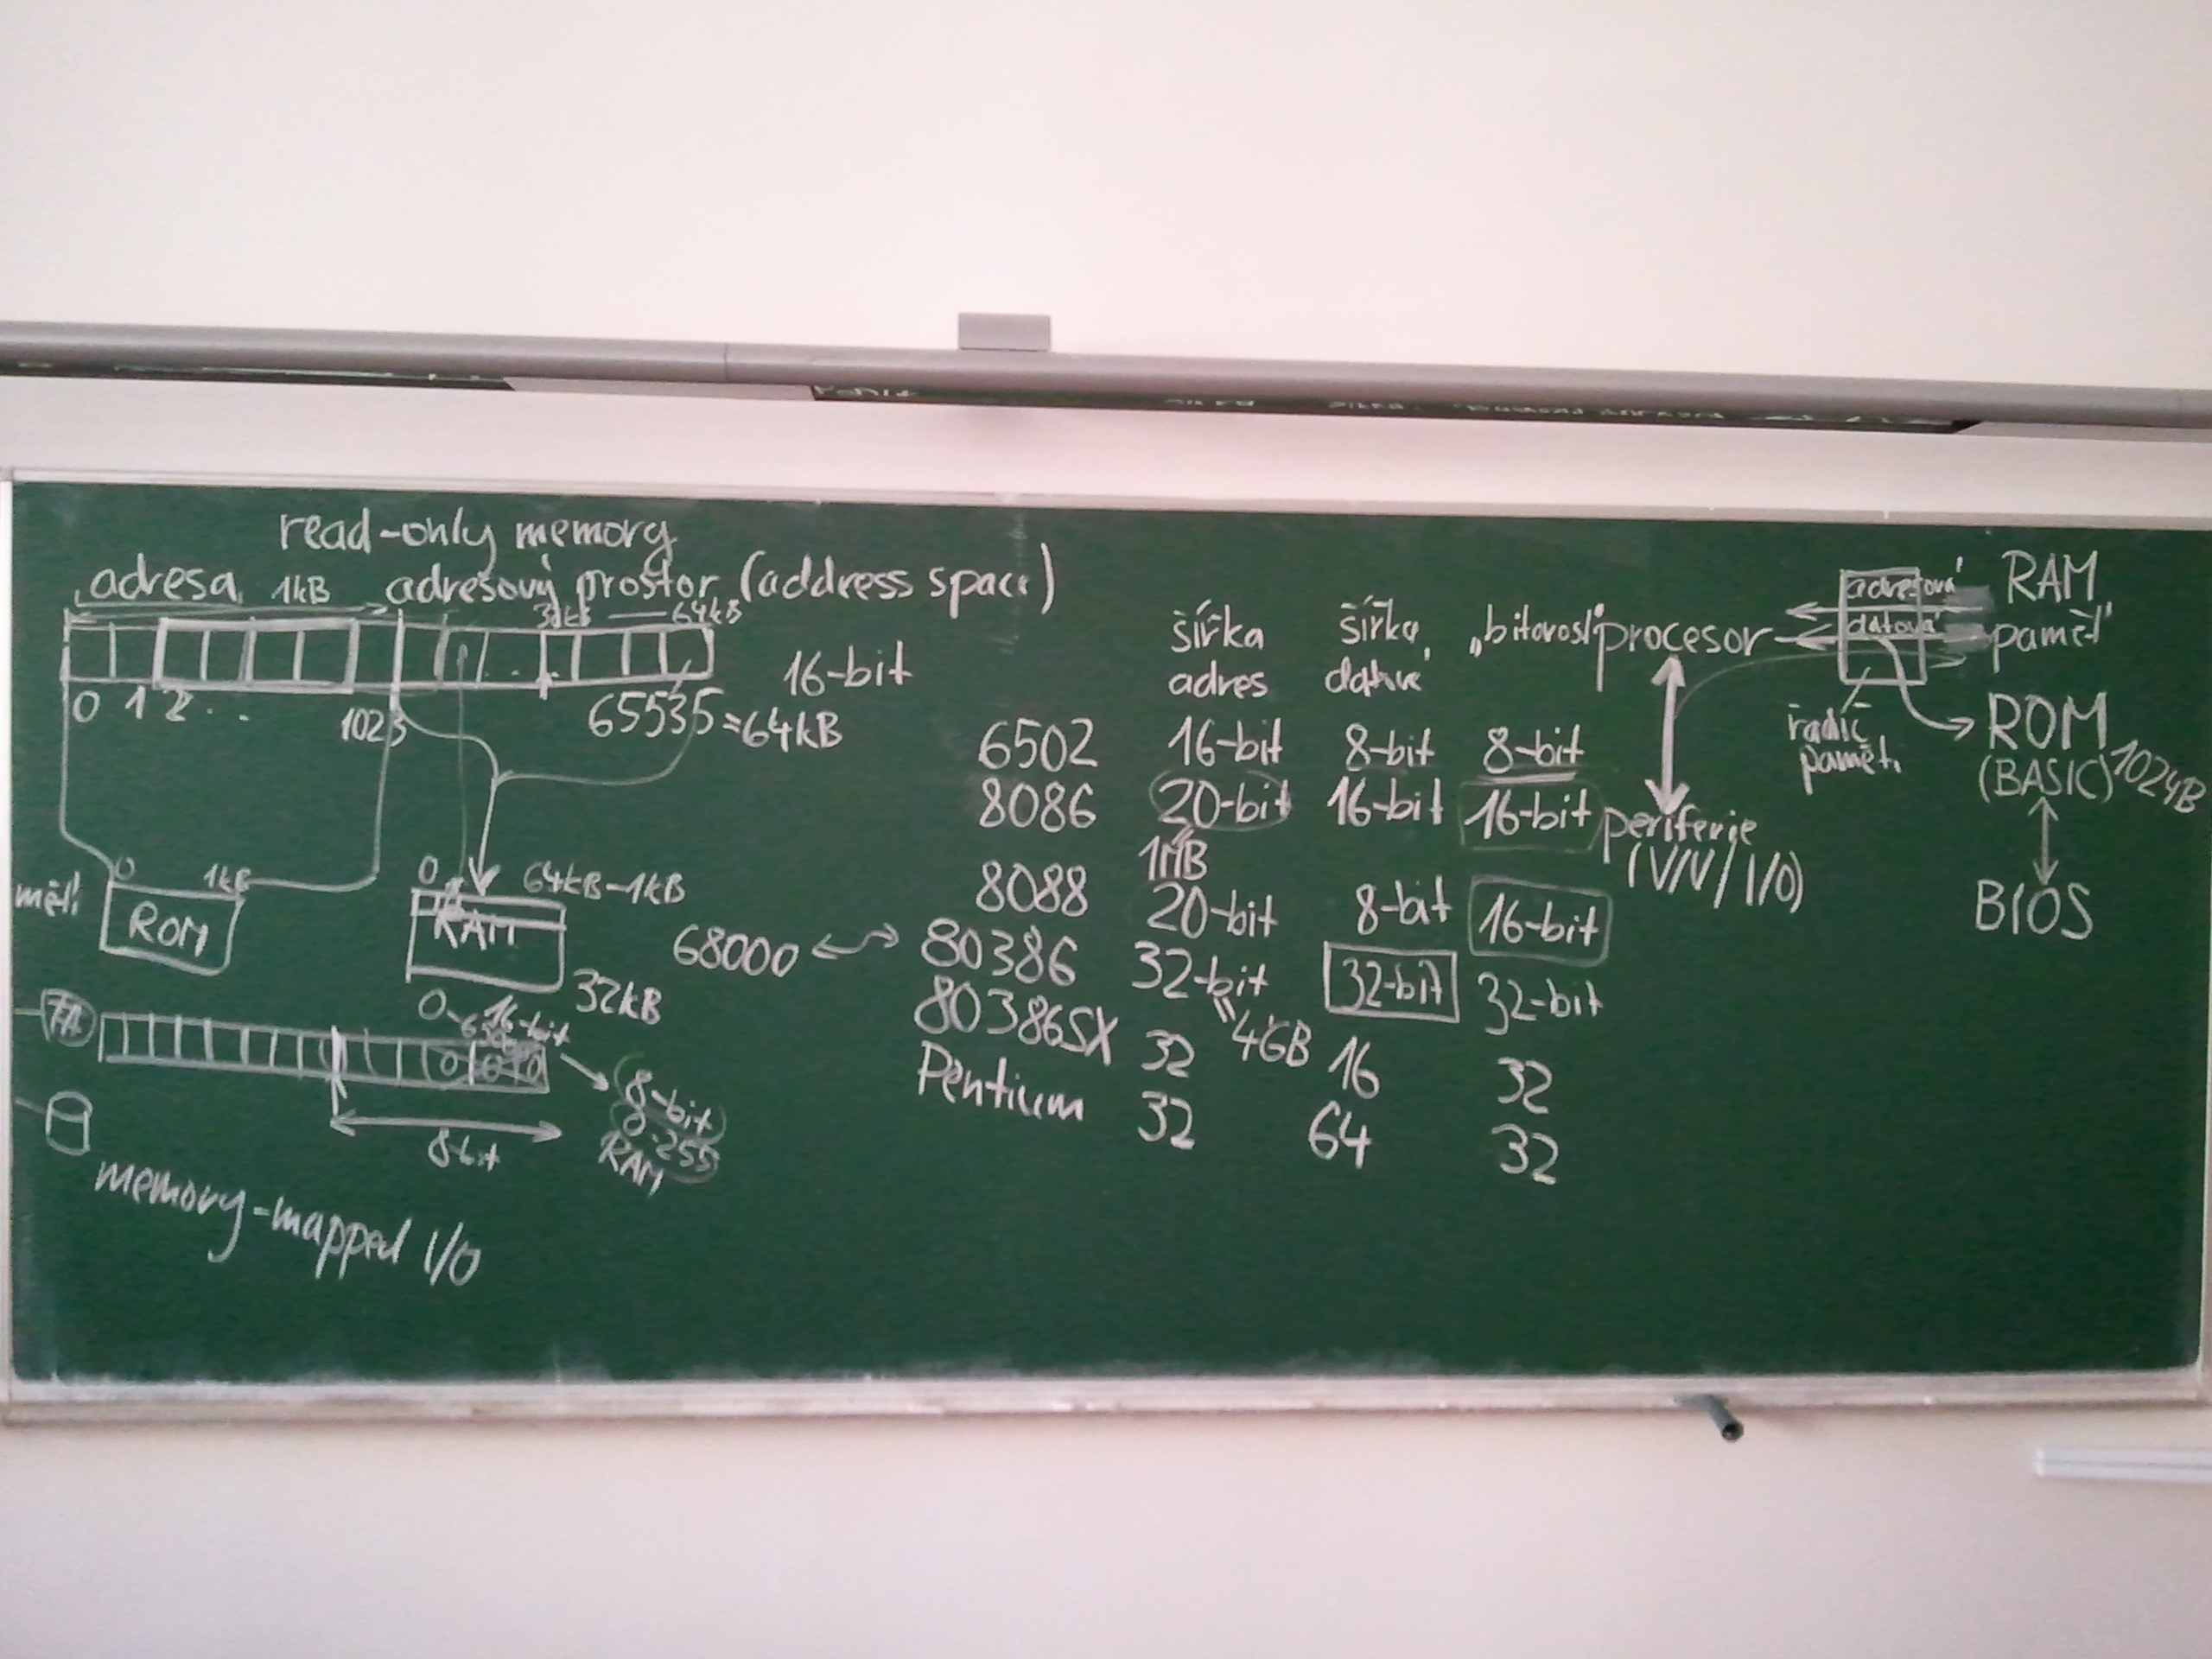 read-only memory
adresa 1kB adresový prostor (address space)
32kB — 64kB
16-bit
0 1 2 . . .
1023
65535 = 64kB
0 1kB
ROM
0 64kB-1kB
RAM
32kB
0- 16-bit
0
8-bit
8-bit
RAM
memory-mapped I/O
šířka adres
šířka datové
„bitovost"
6502 16-bit 8-bit 8-bit
8086 20-bit 16-bit 16-bit
1MB
8088 20-bit 8-bit 16-bit
68000 80386 32-bit 32-bit 32-bit
4GB
80386SX 32 16 32
Pentium 32 64 32
procesor
adresová
datová
RAM
paměť
řadič
pamět.
ROM
(BASIC) 1024B
BIOS
periferie
(V/V / I/O)